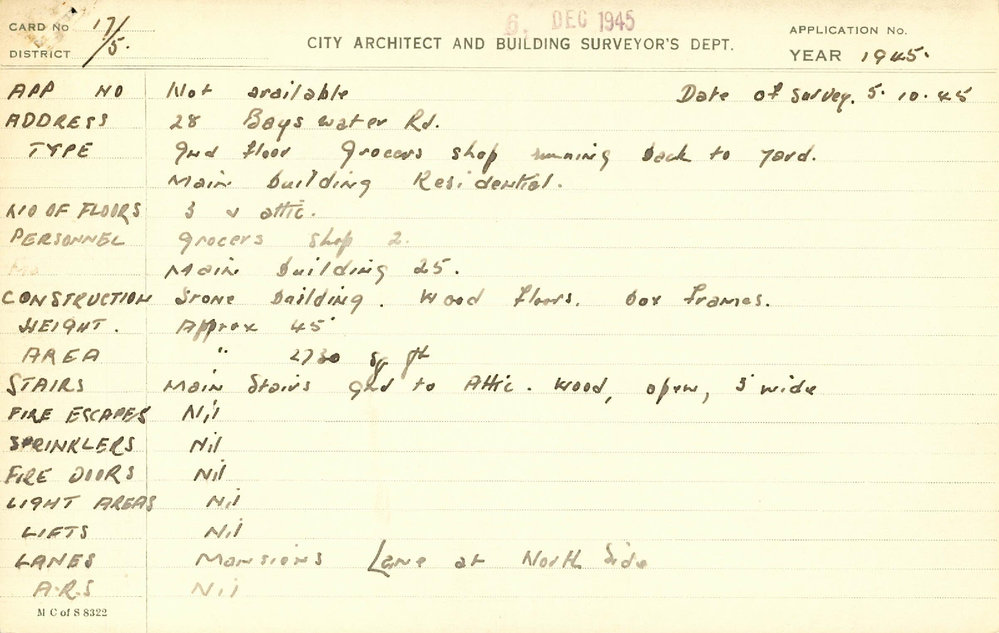 CARD No 17/5.
DISTRICT
6. DEC 1945
CITY ARCHITECT AND BUILDING SURVEYOR'S DEPT.
APPLICATION No.
YEAR 1945.
APP NO Not available Date of Survey. 5.10.45
ADDRESS 28 Bayswater Rd.
TYPE Gnd floor Grocers shop running back to yard.
Main building Residential.
NO OF FLOORS 3 & attic.
PERSONNEL Grocers shop 2.
Main building 25.
CONSTRUCTION Stone building. Wood floors. Box frames.
HEIGHT. Approx 45'
AREA " 2730 sq ft
STAIRS Main Stairs gnd to Attic. Wood, open, 3' wide
FIRE ESCAPES Nil
SPRINKLERS Nil
FIRE DOORS Nil
LIGHT AREAS Nil
LIFTS Nil
LANES Mansions Lane at North Side
A.R.S Nil
M C of S 8322